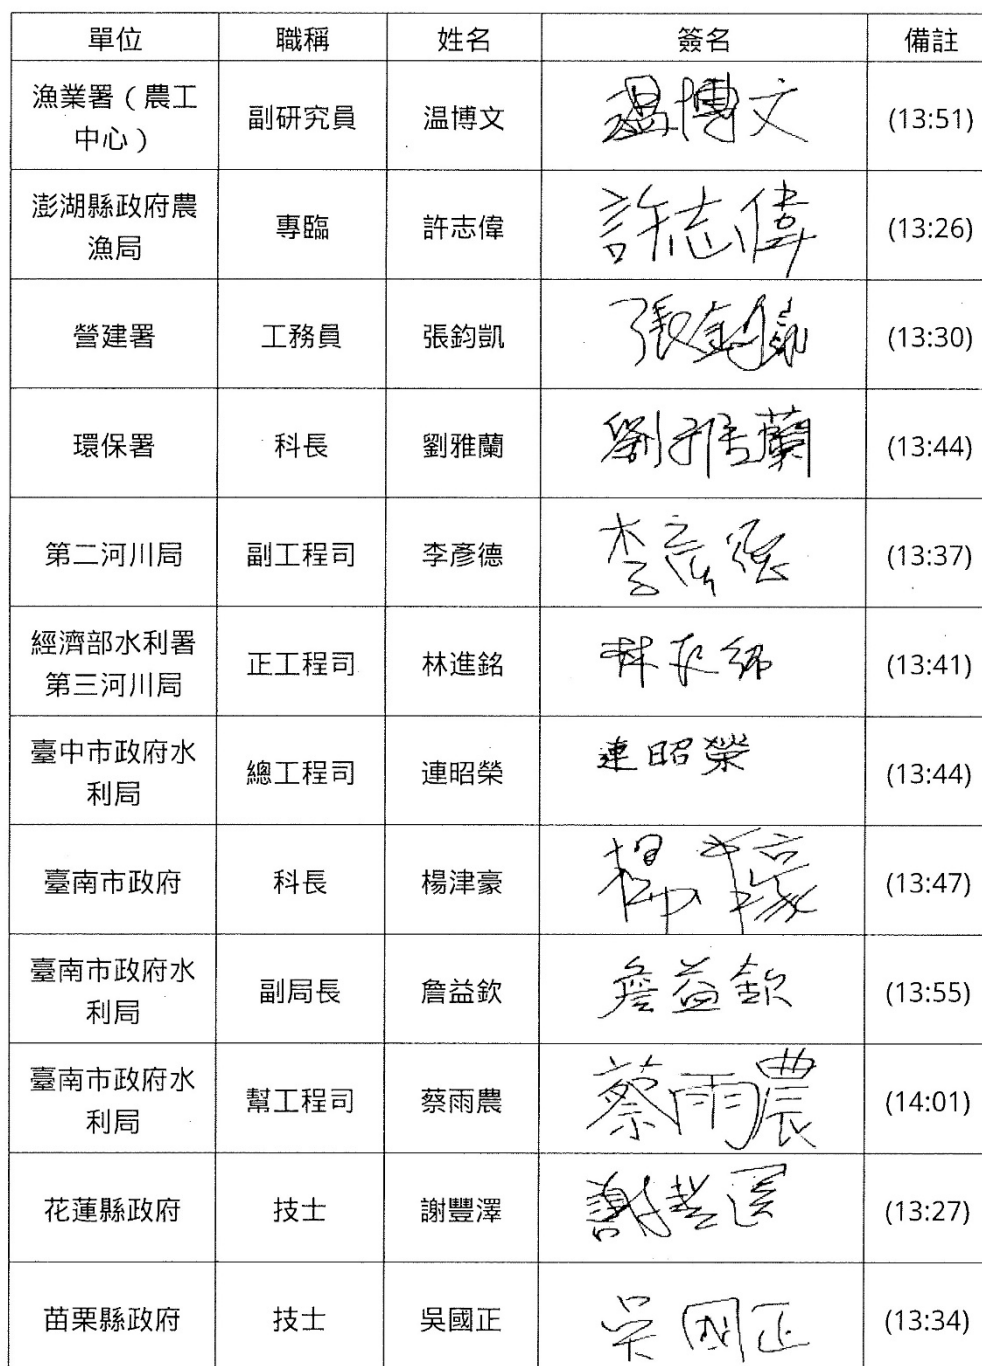 單位 職稱 姓名 簽名 備註
漁業署（農工
中心） 副研究員 温博文 温博文 (13:51)
澎湖縣政府農
漁局 專臨 許志偉 許志偉 (13:26)
營建署 工務員 張鈞凱 張鈞凱 (13:30)
環保署 科長 劉雅蘭 劉雅蘭 (13:44)
第二河川局 副工程司 李彥德 李彥德 (13:37)
經濟部水利署
第三河川局 正工程司 林進銘 林進銘 (13:41)
臺中市政府水
利局 總工程司 連昭榮 連昭榮 (13:44)
臺南市政府 科長 楊津豪 楊津豪 (13:47)
臺南市政府水
利局 副局長 詹益欽 詹益欽 (13:55)
臺南市政府水
利局 幫工程司 蔡雨農 蔡雨農 (14:01)
花蓮縣政府 技士 謝豐澤 謝豐澤 (13:27)
苗栗縣政府 技士 吳國正 吳國正 (13:34)